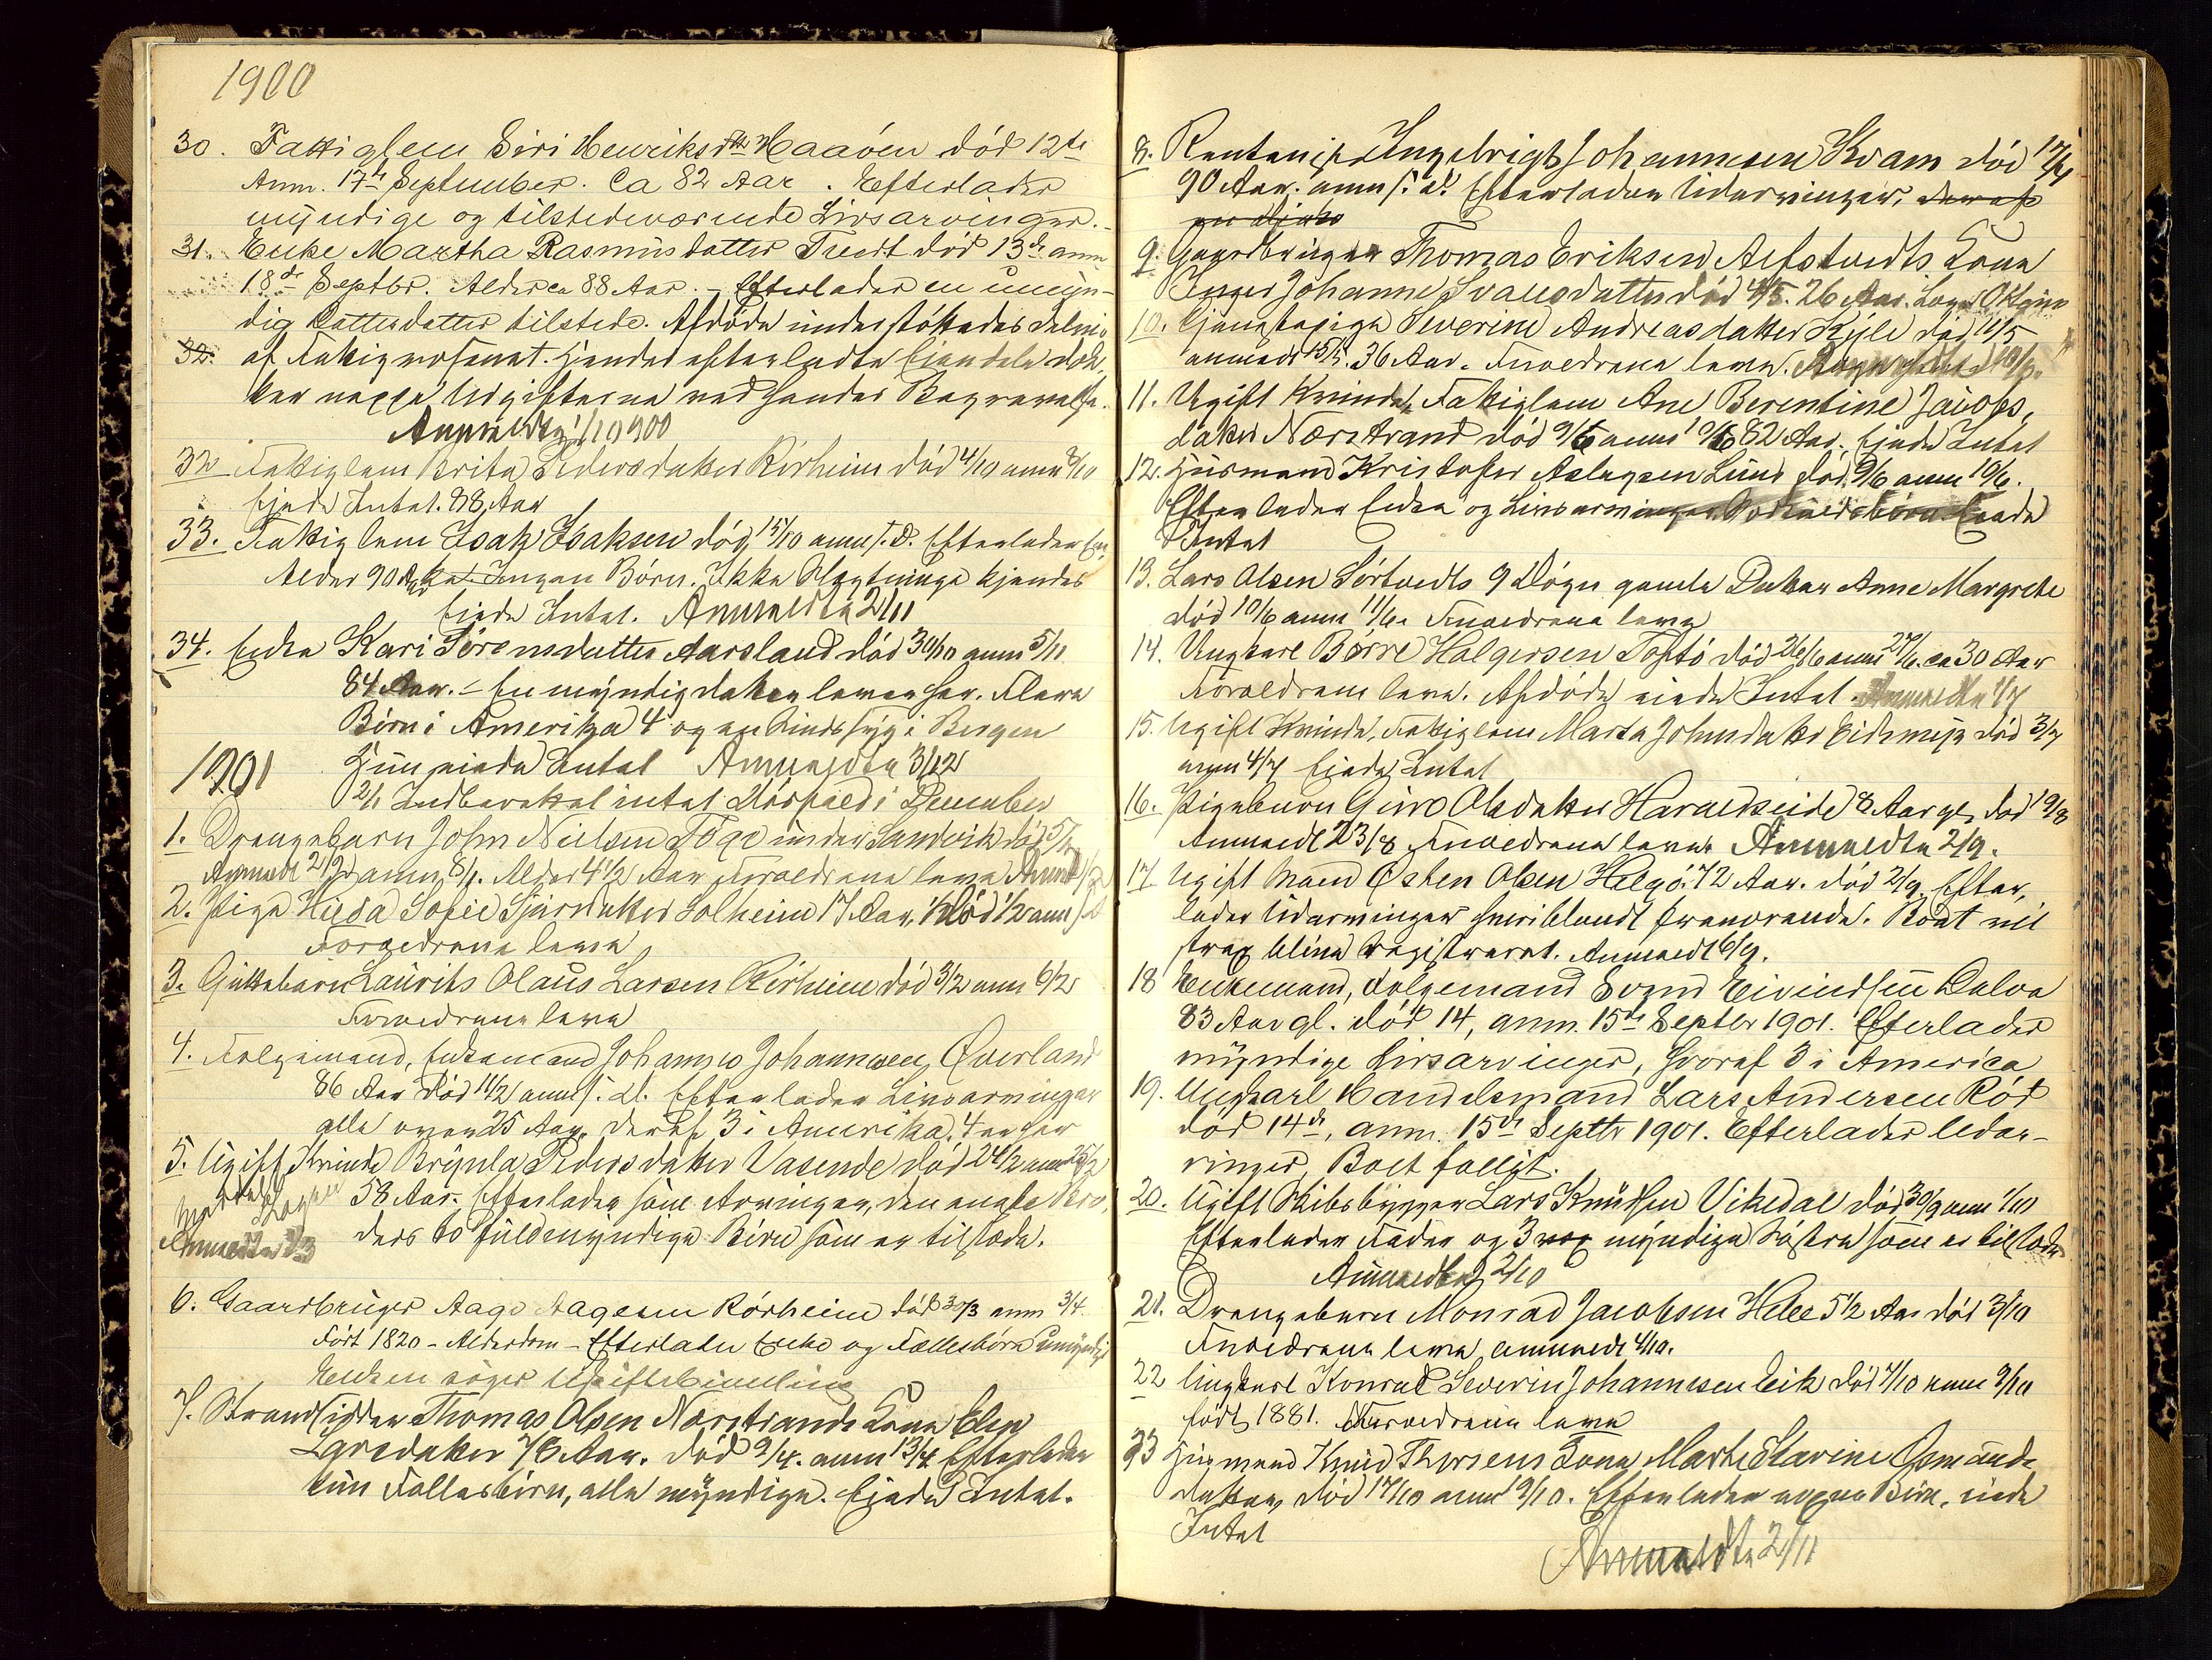 1900
30. Fattiglem Siri Henriksdtr Haaöen död 12te
Anm. 17de September. Ca 82 Aar. Efterlader
myndige og tilstedeværende Livsarvinger.
31. Enke Martha Rasmusdatter Tvedt död 13de anm
18de Septbr. Alder ca 88 Aar. – Efterlader en umyn-
dig Datterdatter tilstede. Afdöde understöttedes delvis
32. af Fattigvæsenet. Hendes efterladte Eiendele dæk-
ker neppe Udgifterne ved hendes Begravelse.
Anmeldte 1/10 900
32 Fattiglem Brita Pedersdatter Rörheim död 4/10 anm 8/10
Eiede Intet. 88 Aar
33. Fattiglem Isak Isaksen död 15/10 anm s. D. Efterlader
Alder 90 Ingen Börn. Ikke Slægtninge kjendes
Eiede Intet. Anmeldte 2/11
34. Enke Kari Sörensdatter Aarsland död 30/10 anm 5/11
84 Aar. – En myndig datter lever her. Flere
Börn i Amerika 4 og en Sindssyg i Bergen
Hun eiede Intet Anmeldte 3/12
1901
2/1 Indberettet intet Dödsfald i December
1. Drengebarn John Nielsen Töge under Sandvik död 5/1
Anmeldt 2/2 anm 8/1. Alder 4 1/2 Aar Foreldrene leve
2. Pige Hilda Sofie Sjursdatter Solheim 17 Aar, död 1/2 anm
Foreldrene leve
3. Guttebarn Laurits Olaus Larsen Rörheim död 3/2 anm 6/2
Foreldrene leve
4. Folgemand, Enkemand Johannes Johannesen Överland
86 Aar död 11/2 anm s. D. Efterlader Livsarvinger
alle over 25 Aar, deraf 3 i Amerika, 4 er her
5. Ugift Kvinde Brynla Pedersdatter Vasende död 24/2 anm 25/2
58 Aar. Efterlader som Arvinger, den ene
ders to fuldmyndige Börn som er tilstede.
Anmeldte 2/3
6. Gaardbruger Aage Aagesen Rörheim död 30/3 anm 3/4.
Født 1820 – Alderdom – Efterlader Enke og Fællesbörn umyndige
Enken söger Uskiftebevilling
7. Strandsidder Thomas Olsen Nærstrands Kone Elen
Larsdatter 78 Aar. död 9/4. anm 13/4 Efterlader
kun Fællesbörn, alle myndige. Eiede Intet.
8. Rentenist Ingebrigt Johannesen Kvam död 17/4
90 Aar. anm s. D. Efterlader Udarvinger,
9. Gaardbruger Thomas Eriksen Alfstvedts Kone
Inger Johanne Svalesdatter död 4/5. 26 Aar.
10. Tjenestepige Severine Andreasdatter Kyle död 11/5
anmeldt 15/5. 36 Aar. Foreldrene leve.
11. Ugift Kvinde, Fattiglem Ane Berentine Jacobs-
datter Nærstrand död 9/6 anm 10/6 82 Aar. Eiede Intet
12. Husmand Kristofer Aslagsen Lund död 9/6 anm 10/6.
Efterlader Enke og Livsarvinger. Eiede
Intet
13. Lars Olsen Sörtvedts 9 Dögn gamle Datter Anne Margrete
död 10/6 anm 11/6. Foreldrene leve
14. Ungkarl Börre Halgersen Toftö död 26/6 anm 27/6. ca 30 Aar
Foreldrene leve. Afdöde eiede Intet. Anmeldte 1/7
15. Ugift Kvinde, Fattiglem Marta Johnsdatter död 3/7
anm 4/7 Eiede Intet
16. Pigebarn Guro Olsdatter Haraldseide 8 Aar gl, död 19/8
Anmeldt 23/8 Foreldrene lever Anmeldte 2/9.
17 Ugift Mand Østen Olsen Helgö. 72 Aar. död 2/9. Efter-
lader Udarvinger hvoriblandt fraværende. Boet vil
strax blive registreret. Anmeldt 6/9.
18 Enkemand, Folgemand Svend Eivindsen Dalva
83 Aar gl. död 14, anm. 15de Septbr 1901. Efterlader
myndige Livsarvinger, hvoraf 3 i America
19. Ungkarl Handelsmand Lars Andersen Röd
död 14de, anm. 15de Septbr 1901. Efterlader Udar-
vinger, Boet fallit.
20. Ugift Skibsbygger Lars Knudsen Vikedal död 30/9 anm 1/10
Efterlader Fader og 3 myndige Söstre som er tilstede
Anmeldte 2/10
21. Drengebarn Monrad Jacobsen Helle 5 1/2 Aar död 3/10
Foreldrene leve, anmeldt 4/10.
22 Ungkarl Konrad Severin Johannesen Eik död 7/10 anm 9/10
født 1881. Foreldrene leve
23 Husmand Knud Thorsens Kone Marte Karine Osmunds-
datter, död 17/10 anm 19/10. Efterlader voxne Börn, eiede
Intet
Anmeldte 2/11